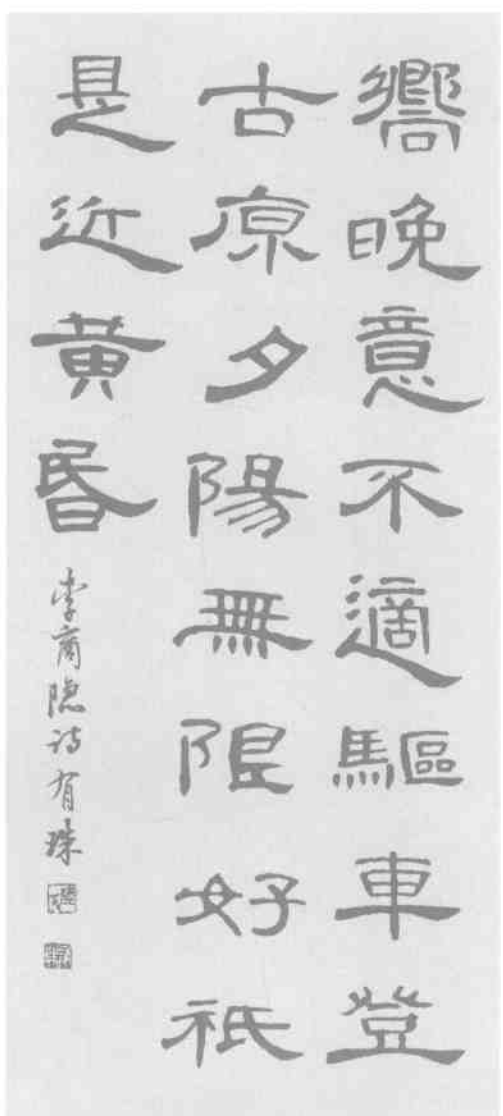 嚮晚意不適驅車登
古原夕陽無限好祇
是近黃昏
李商隐诗有珠